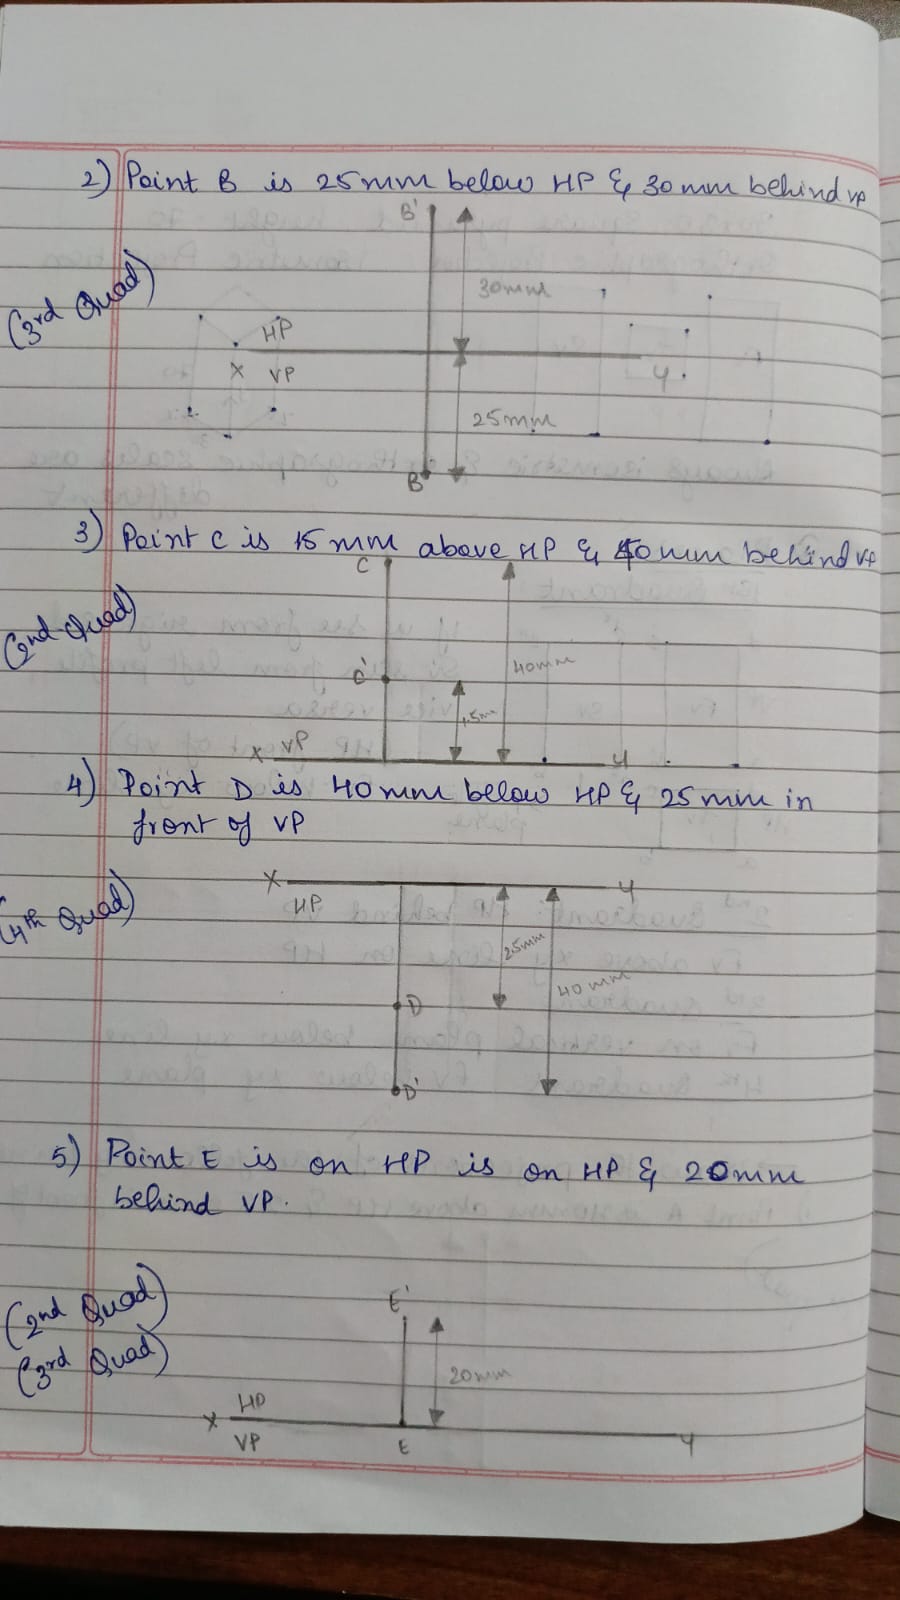 2) Point B is 25mm below HP & 30mm behind VP
B'
(3rd Quad)
30mm
HP
X VP Y
25mm
B
3) Point C is 15mm above HP & 40mm behind VP
C
(2nd Quad)
40mm
C'
15m
X VP Y
4) Point D is 40mm below HP & 25mm in
front of VP
X Y
HP
(4th Quad)
25mm
40mm
D
D'
5) Point E is on HP is on HP & 20mm
behind VP.
(2nd Quad)
E'
(3rd Quad)
20mm
HP
X
VP E Y